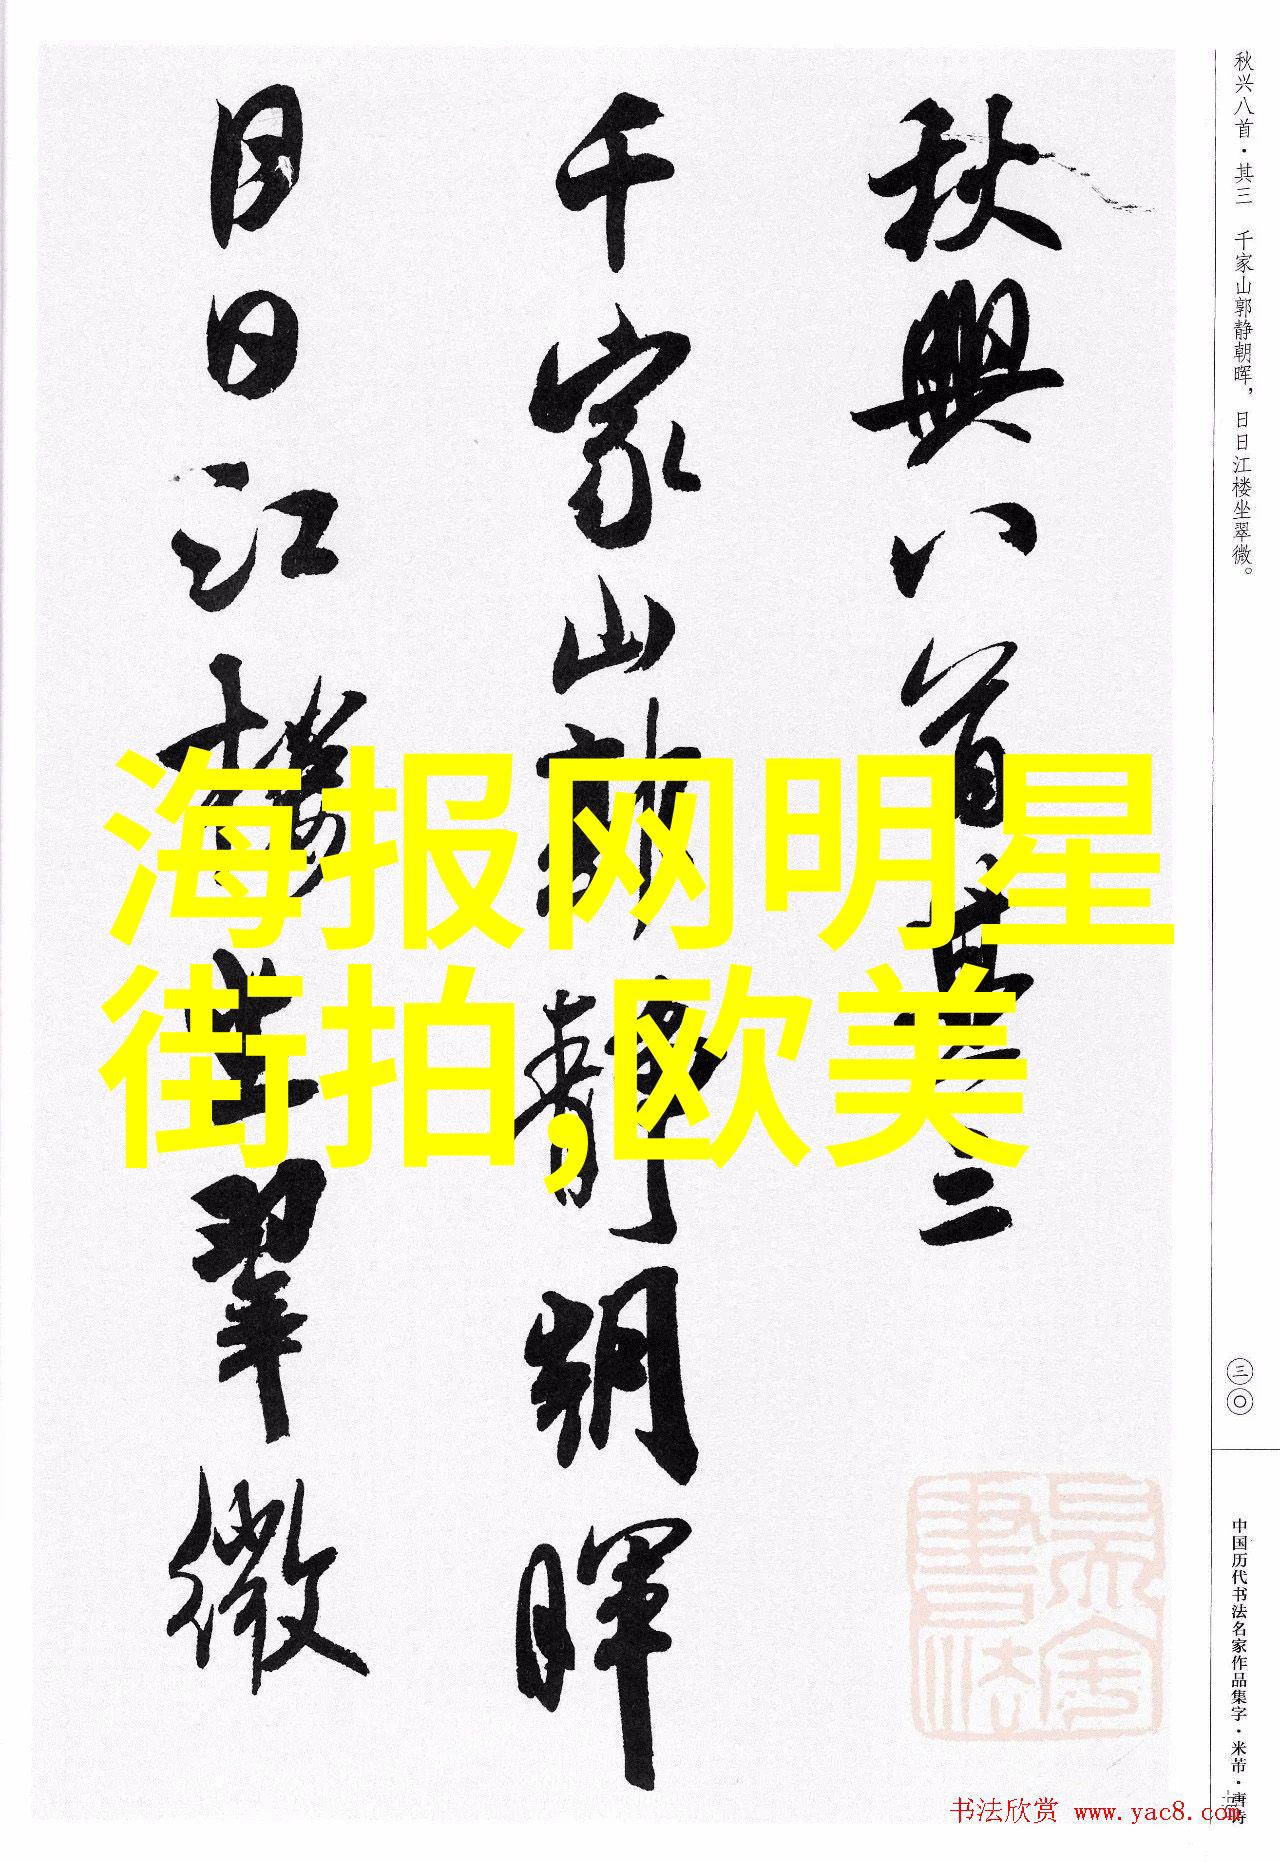 秋兴八首·其三 千家山郭静朝晖，日日江楼坐翠微。
秋興八首其三
千家山郭靜朝暉
日日江樓坐翠微
海报网明星
街拍,欧美
三〇
中国历代书法名家作品集字·米芾·唐诗
书法欣赏 www.yac8.com